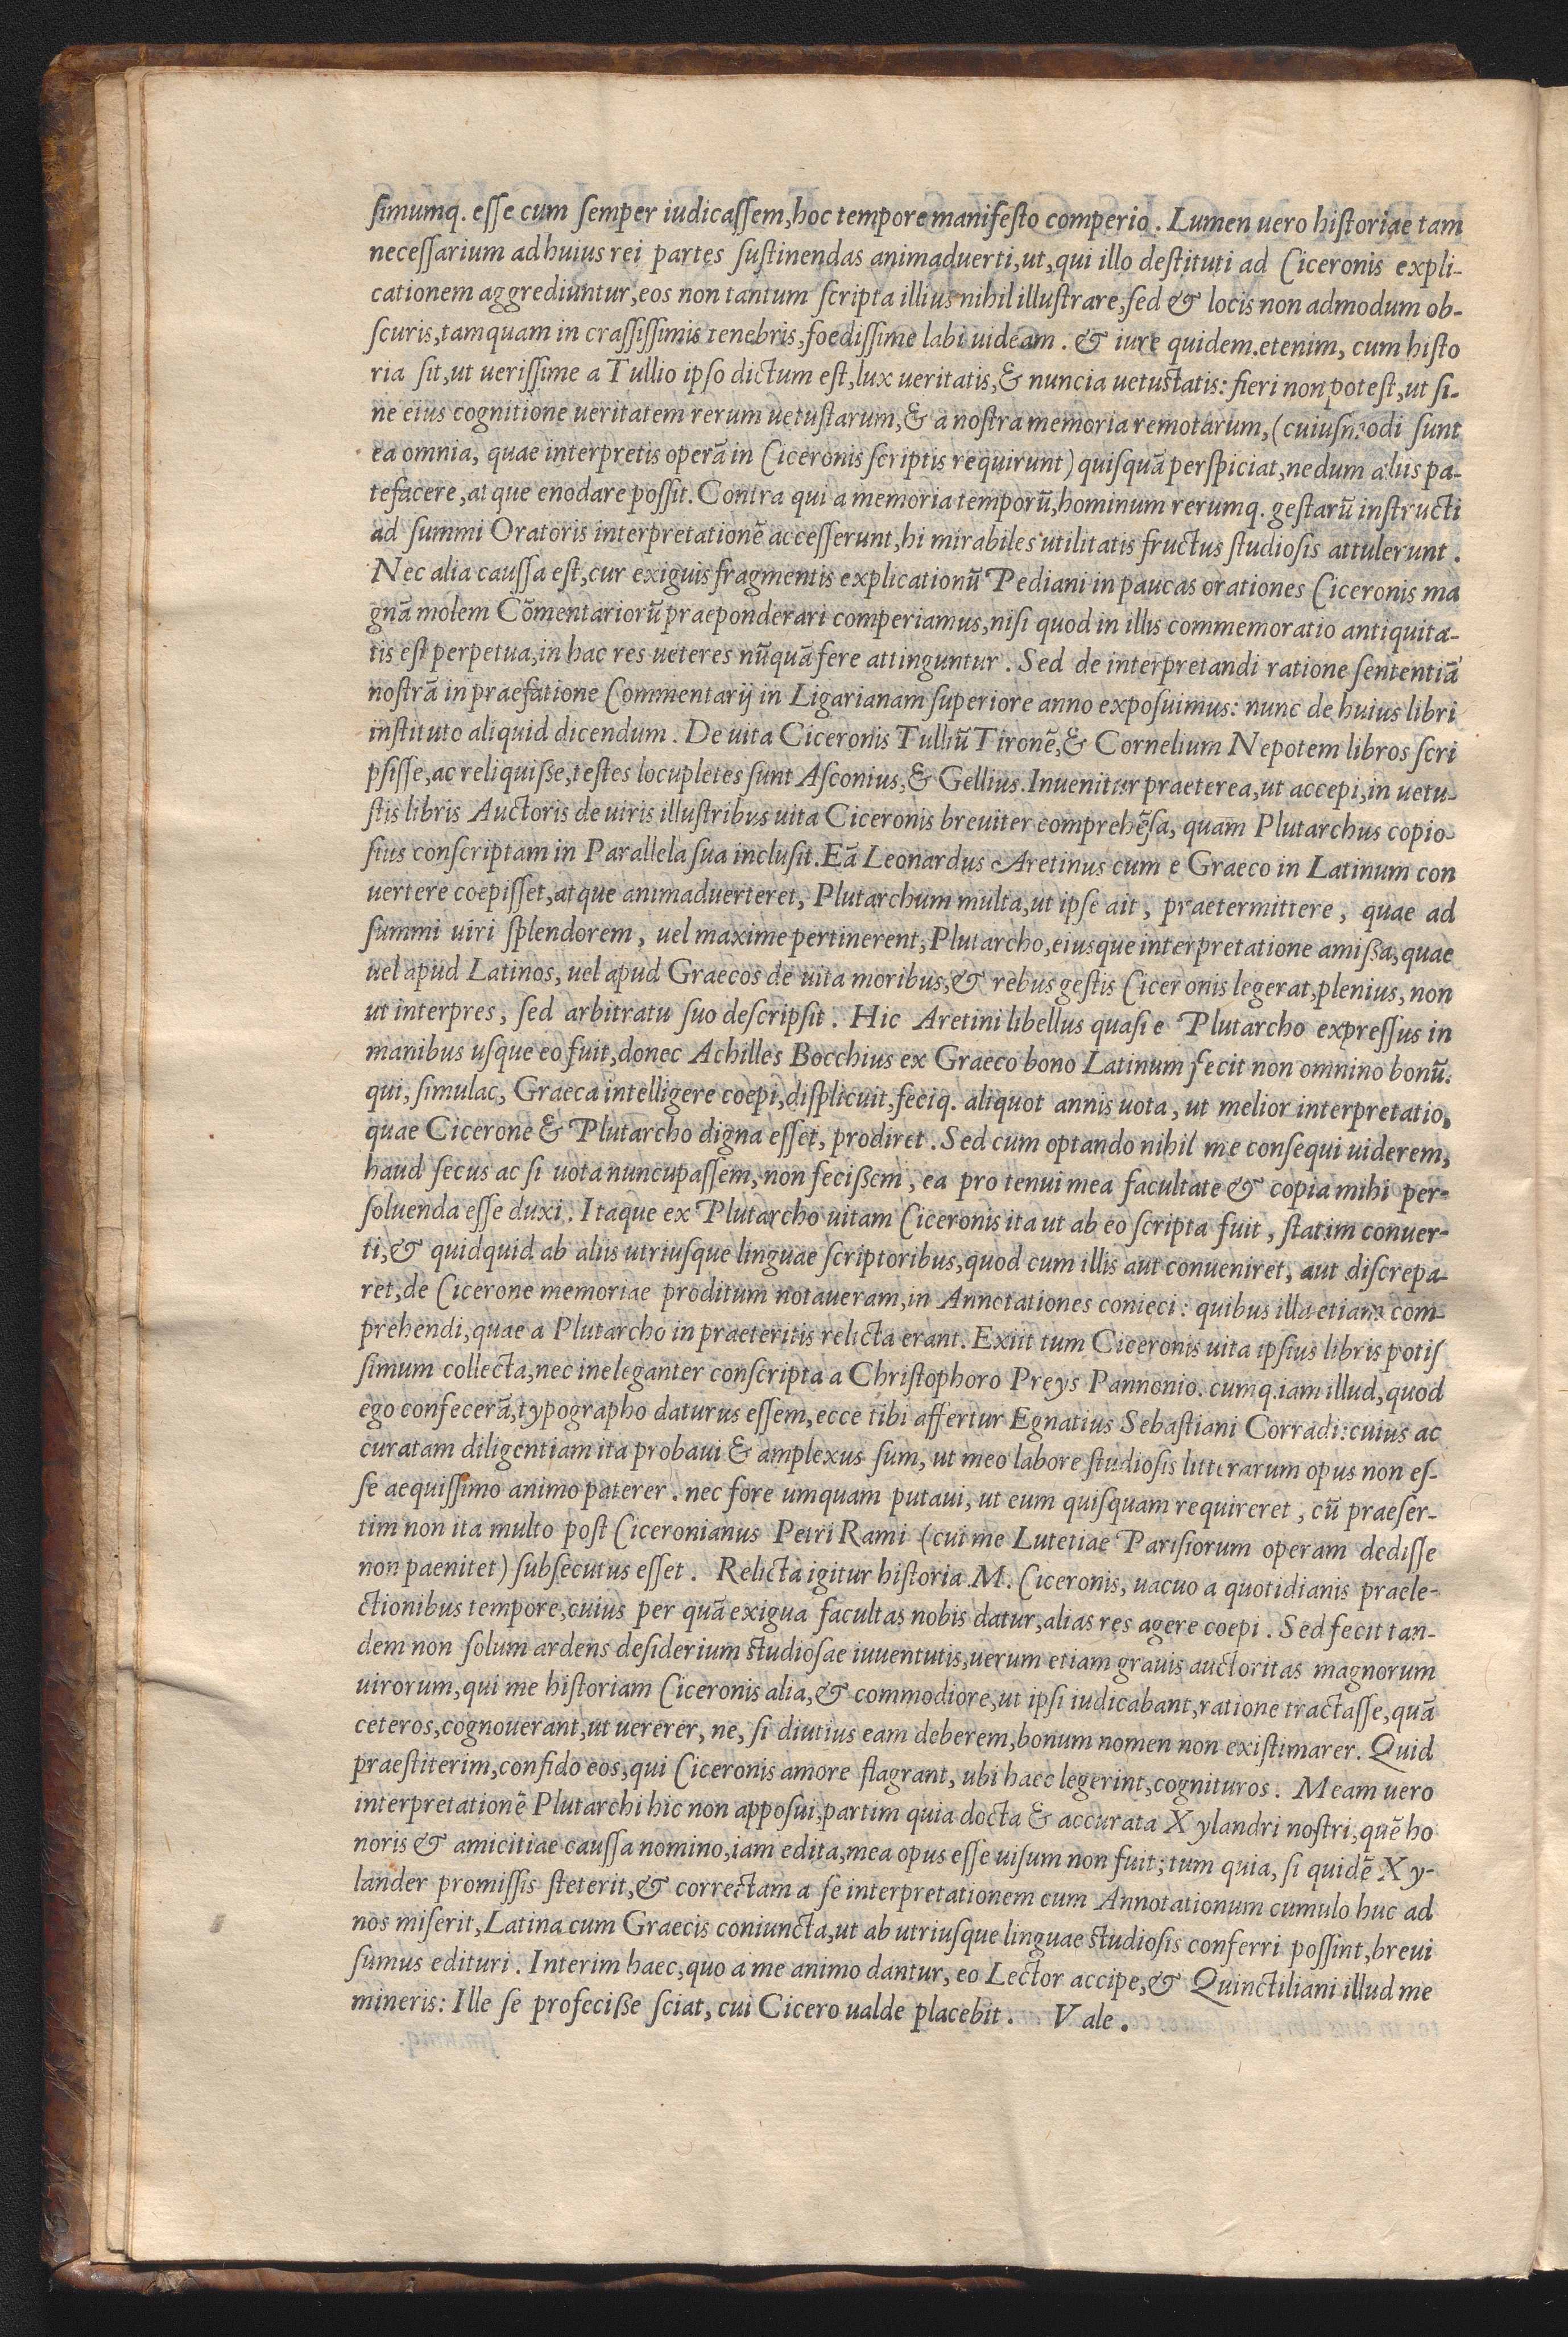 ſimumq. eſſe cum ſemper iudicaſſem, hoc tempore manifeſto comperio. Lumen uero hiſtoriae tam
neceſſarium ad huius rei partes ſuſtinendas animaduerti, ut, qui illo deſtituti ad Ciceronis expli-
cationem aggrediuntur, eos non tantum ſcripta illius nihil illuſtrare, ſed & locis non admodum ob-
ſcuris, tamquam in craſſiſſimis tenebris, foediſſime labi uideam. & iure quidem. etenim, cum hiſto
ria ſit, ut ueriſſime a Tullio ipſo dictum eſt, lux ueritatis, & nuncia uetuſtatis: fieri non poteſt, ut ſi-
ne eius cognitione ueritatem rerum uetuſtarum, & a noſtra memoria remotarum, (cuiuſmodi ſunt
ea omnia, quae interpretis operā in Ciceronis ſcriptis requirunt) quiſquā perſpiciat, nedum aliis pa-
tefacere, atque enodare poſſit. Contra qui a memoria temporū, hominum rerumq. geſtarū inſtructi
ad ſummi Oratoris interpretationē acceſſerunt, hi mirabiles utilitatis fructus ſtudioſis attulerunt.
Nec alia cauſſa eſt, cur exiguis fragmentis explicationū Pediani in paucas orationes Ciceronis ma
gnā molem Cōmentariorū praeponderari comperiamus, niſi quod in illis commemoratio antiquita-
tis eſt perpetua, in hac res ueteres nūquā fere attinguntur. Sed de interpretandi ratione ſententiā
noſtrā in praefatione Commentarij in Ligarianam ſuperiore anno expoſuimus: nunc de huius libri
inſtituto aliquid dicendum. De uita Ciceronis Tulliū Tironē, & Cornelium Nepotem libros ſcri
pſiſſe, ac reliquiſſe, teſtes locupletes ſunt Aſconius, & Gellius. Inuenitur praeterea, ut accepi, in uetu-
ſtis libris Auctoris de uiris illuſtribus uita Ciceronis breuiter comprehēſa, quam Plutarchus copio-
ſius conſcriptam in Parallela ſua incluſit. Eā Leonardus Aretinus cum e Graeco in Latinum con
uertere coepiſſet, atque animaduerteret, Plutarchum multa, ut ipſe ait, praetermittere, quae ad
ſummi uiri ſplendorem, uel maxime pertinerent, Plutarcho, eiusque interpretatione amiſſa, quae
uel apud Latinos, uel apud Graecos de uita moribus, & rebus geſtis Ciceronis legerat, plenius, non
ut interpres, ſed arbitratu ſuo deſcripſit. Hic Aretini libellus quaſi e Plutarcho expreſſus in
manibus uſque eo fuit, donec Achilles Bocchius ex Graeco bono Latinum fecit non omnino bonū.
qui, ſimulac, Graeca intelligere coepi, diſplicuit, feciq. aliquot annis uota, ut melior interpretatio,
quae Cicerone & Plutarcho digna eſſet, prodiret. Sed cum optando nihil me conſequi uiderem,
haud ſecus ac ſi uota nuncupaſſem, non feciſſem, ea pro tenui mea facultate & copia mihi per-
ſoluenda eſſe duxi. Itaque ex Plutarcho uitam Ciceronis ita ut ab eo ſcripta fuit, ſtatim conuer-
ti, & quidquid ab aliis utriuſque linguae ſcriptoribus, quod cum illis aut conueniret, aut diſcrepa-
ret, de Cicerone memoriae proditum notaueram, in Annotationes conieci: quibus illa etiam com-
prehendi, quae a Plutarcho in praeteritis relicta erant. Exiit tum Ciceronis uita ipſius libris potiſ
ſimum collecta, nec ineleganter conſcripta a Chriſtophoro Preys Pannonio. cumq. iam illud, quod
ego confecerā, typographo daturus eſſem, ecce tibi affertur Egnatius Sebaſtiani Corradi: cuius ac
curatam diligentiam ita probaui & amplexus ſum, ut meo labore ſtudioſis litterarum opus non eſ-
ſe aequiſſimo animo paterer. nec fore umquam putaui, ut eum quiſquam requireret, cū praeſer-
tim non ita multo poſt Ciceronianus Petri Rami (cui me Lutetiae Pariſiorum operam dediſſe
non paenitet) ſubſecutus eſſet. Relicta igitur hiſtoria M. Ciceronis, uacuo a quotidianis praele-
ctionibus tempore, cuius per quā exigua facultas nobis datur, alias res agere coepi. Sed fecit tan-
dem non ſolum ardens deſiderium ſtudioſae iuuentutis, uerum etiam grauis auctoritas magnorum
uirorum, qui me hiſtoriam Ciceronis alia, & commodiore, ut ipſi iudicabant, ratione tractaſſe, quā
ceteros, cognouerant, ut uererer, ne, ſi diutius eam deberem, bonum nomen non exiſtimarer. Quid
praeſtiterim, confido eos, qui Ciceronis amore flagrant, ubi haec legerint, cognituros. Meam uero
interpretationē Plutarchi hic non appoſui, partim quia docta & accurata Xylandri noſtri, quē ho
noris & amicitiae cauſſa nomino, iam edita, mea opus eſſe uiſum non fuit; tum quia, ſi quidē Xy-
lander promiſſis ſteterit, & correctam a ſe interpretationem cum Annotationum cumulo huc ad
nos miſerit, Latina cum Graecis coniuncta, ut ab utriuſque linguae ſtudioſis conferri poſſint, breui
ſumus edituri. Interim haec, quo a me animo dantur, eo Lector accipe, & Quinctiliani illud me
mineris: Ille ſe profeciſſe ſciat, cui Cicero ualde placebit. Vale.